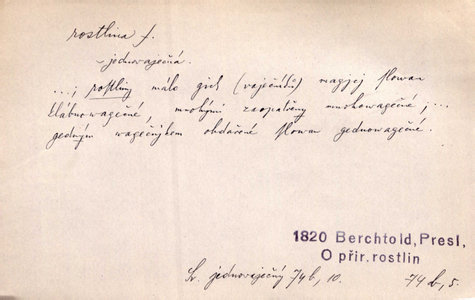 rostlina f.
~ jednovaječná.
...; rostliny málo gich (vaječníků) magjcj slowau
člábnowagečné, mnohými zaopatřeny mnohowagečné; ...
gedným wagečnjkem obdařené slowau gednowagečné.
1820 Berchtold, Presl,
O přir. rostlin
Sr. jednovaječný 74b, 10. 74b, 5.